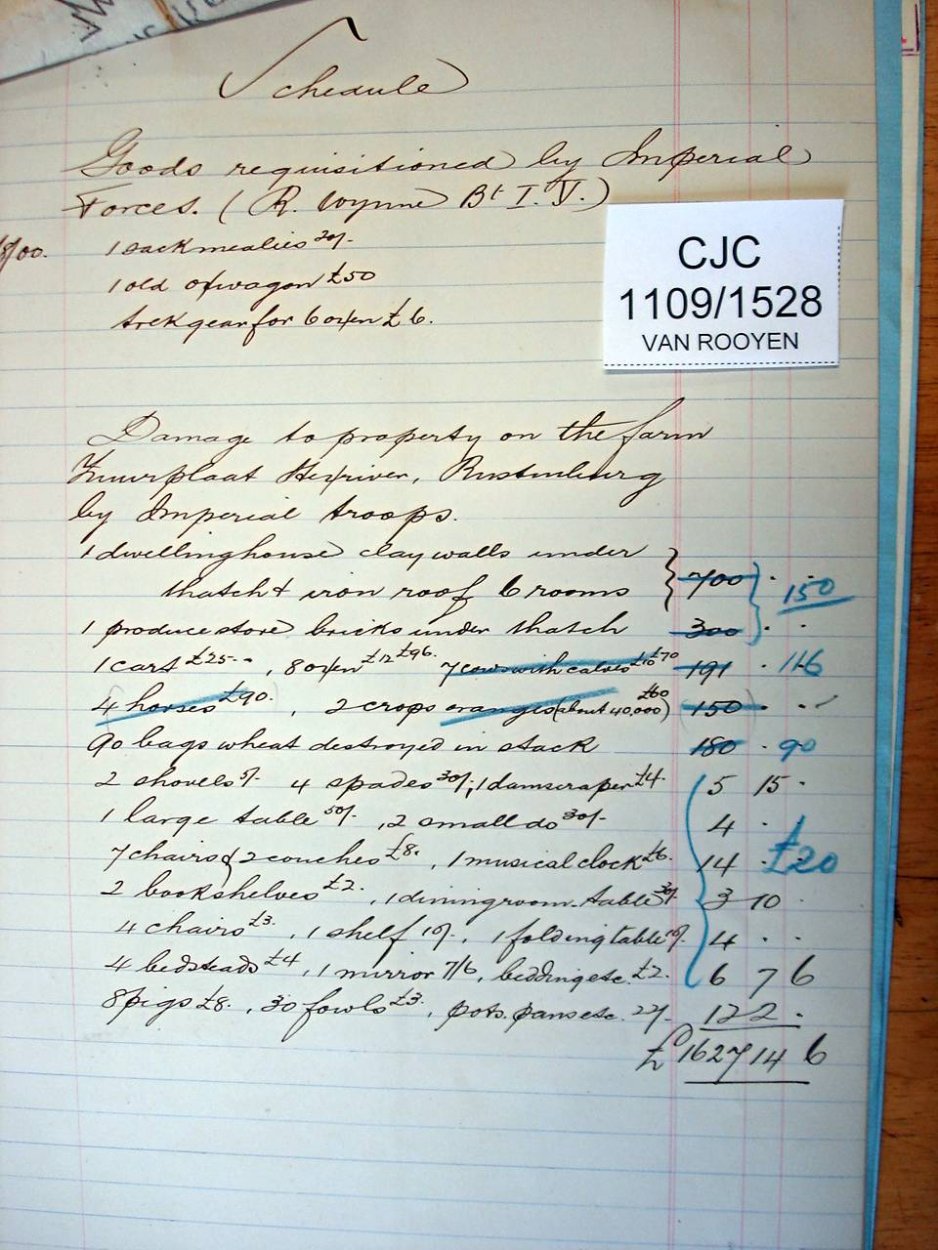 Schedule
Goods requisitioned by Imperial
Forces. (R. Wynne Bt I. Y.)
/00. 1 sack mealies 30/-
1 old oxwagon £50
trek gear for 6 oxen £6.
CJC
1109/1528
VAN ROOYEN
Damage to property on the farm
Zuurplaat Hexriver, Rustenburg
by Imperial troops.
1 dwelling house clay walls under
thatch & iron roof 6 rooms 700 . . 150
1 produce store bricks under thatch 300 . .
1 cart £25 - - , 8 oxen £12 £96. 7 cows with calves £10 £70 191 . 116
4 horses £90. , 2 crops oranges (about 40,000) £60 150 . .
90 bags wheat destroyed in stack 180 . 90
2 shovels 5/- 4 spades 30/-, 1 damscraper £4 5 15 .
1 large table 50/- , 2 small do 30/- 4 .
7 chairs & 2 couches £8. , 1 musical clock £6. 14 . £20
2 bookshelves £2. , 1 diningroom table 30/- 3 10 .
4 chairs £3. , 1 shelf 10/-. , 1 folding table 10/- 4 . .
4 bedsteads £4, 1 mirror 7/6, bedding etc. £2. 6 7 6
8 pigs £8. , 30 fowls £3. , pots. pans etc. 22/- 12 2 .
£1627 14 6